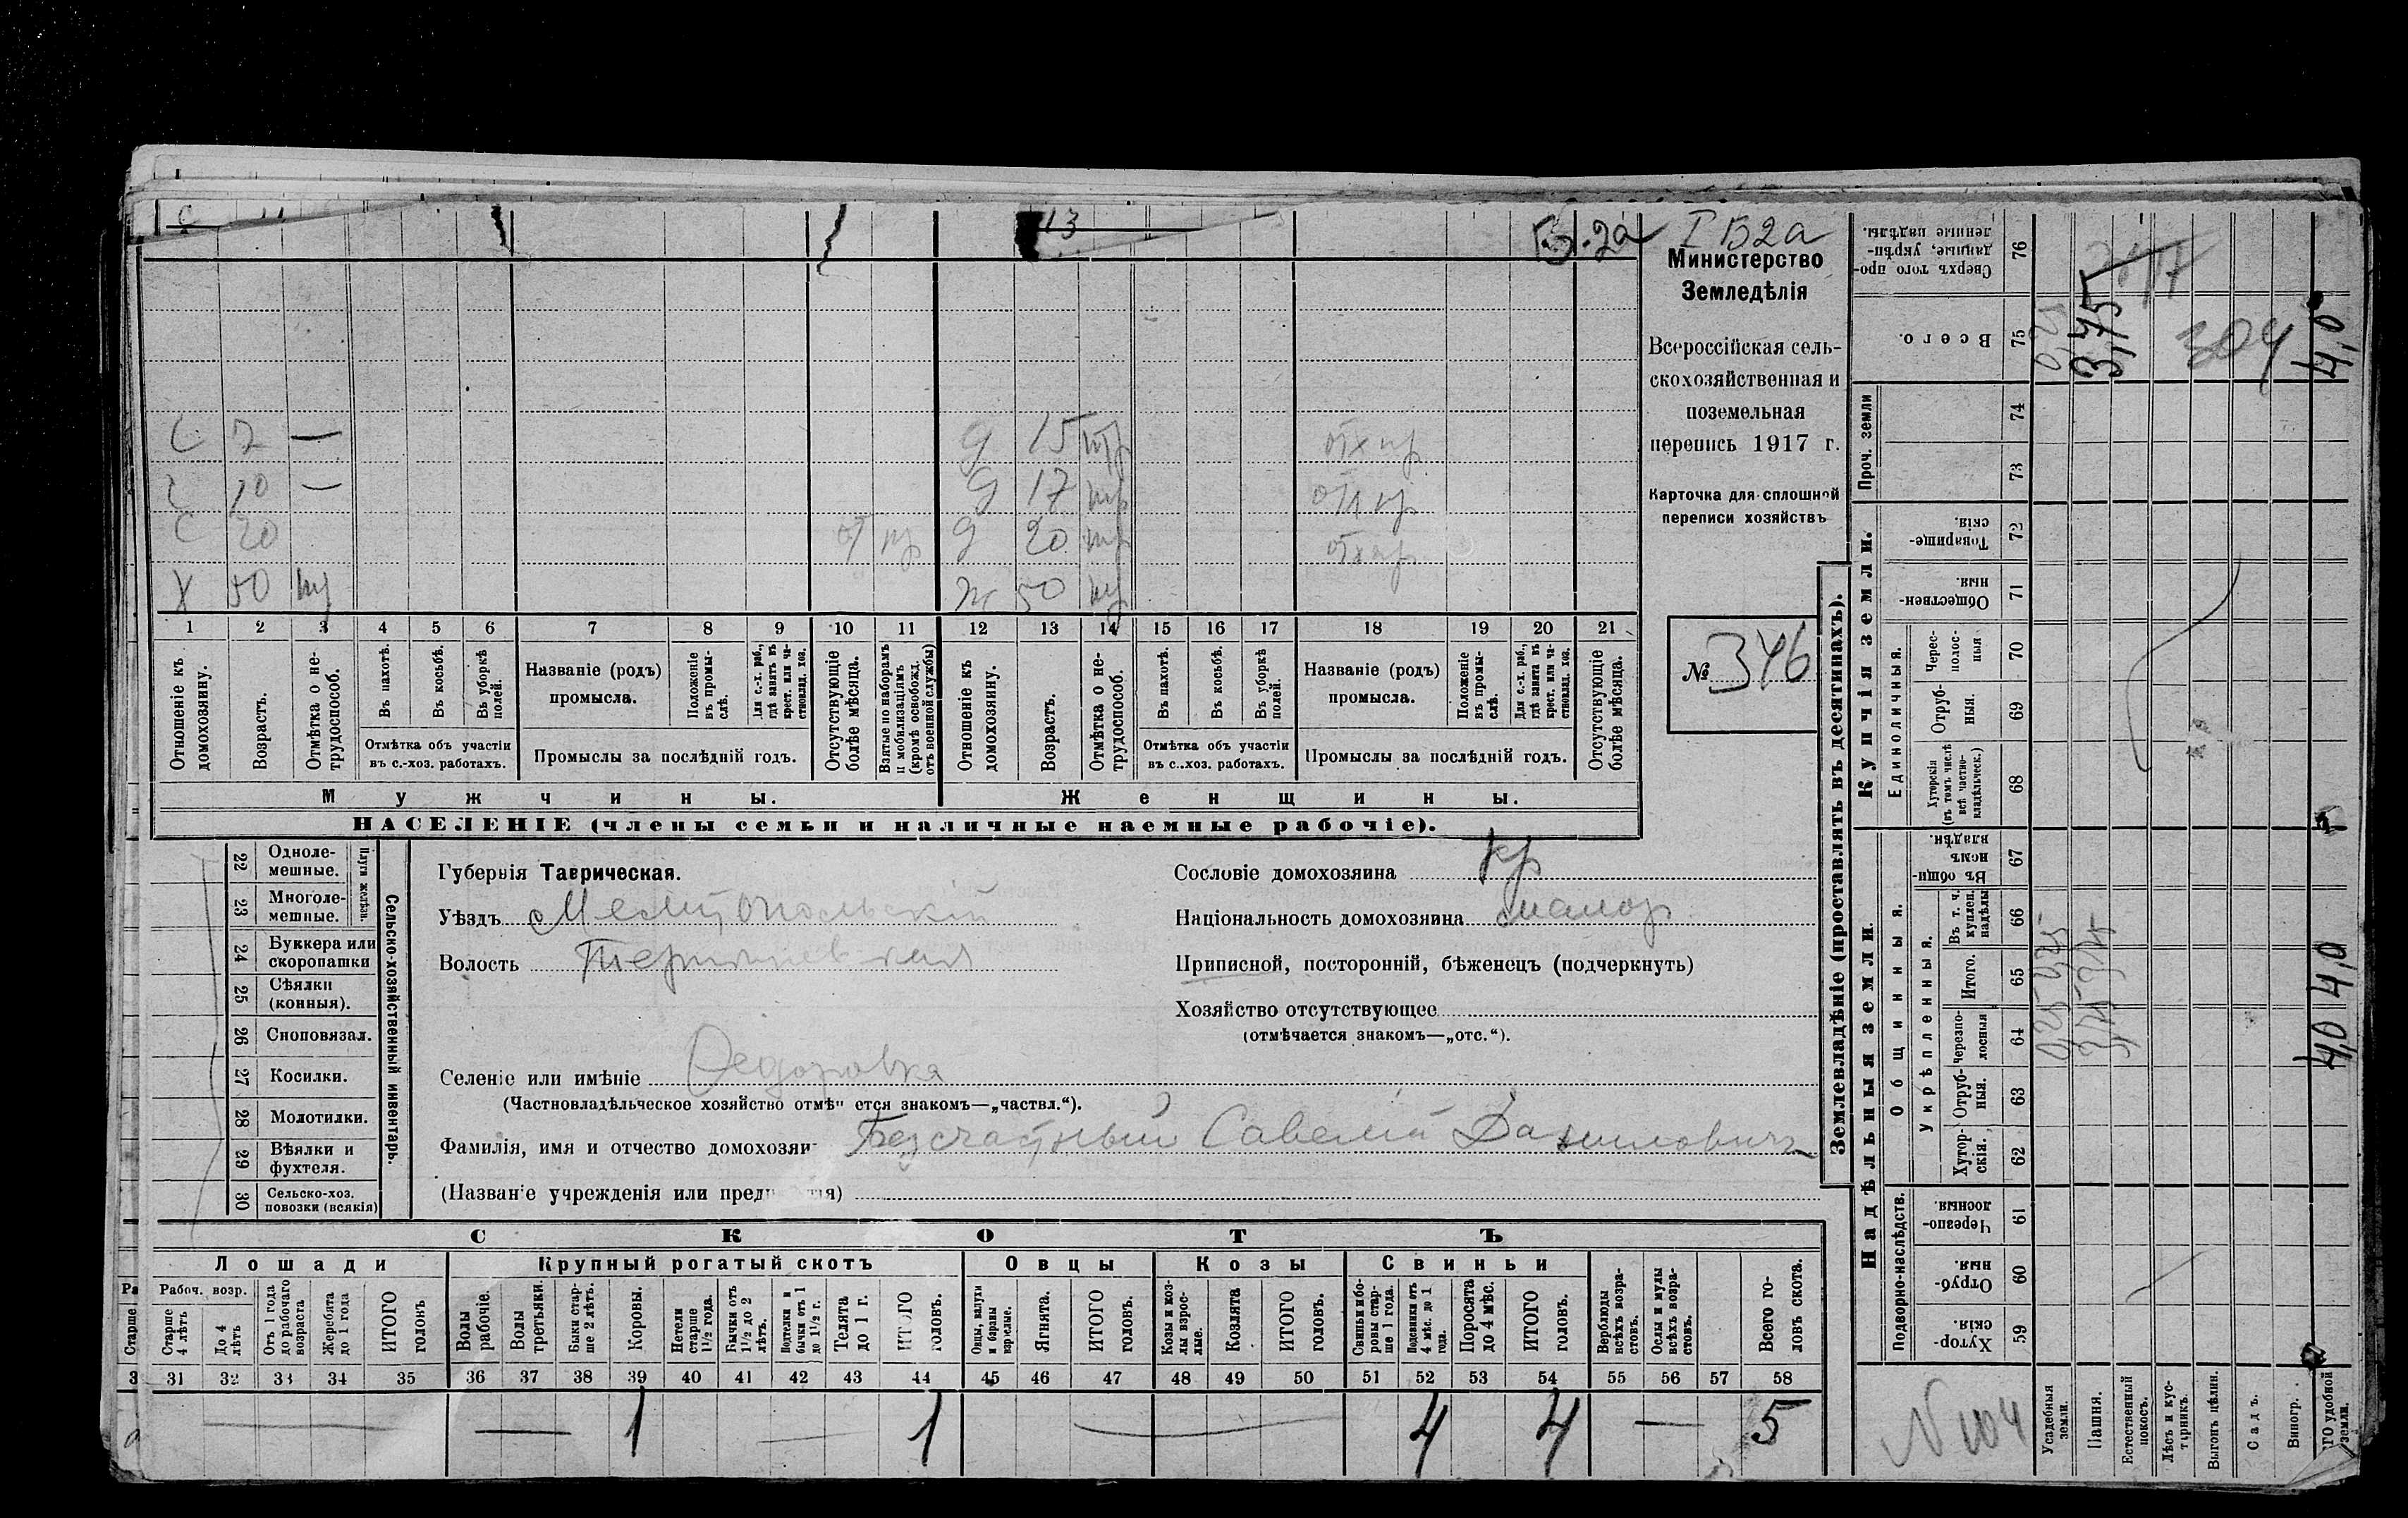 13
Б.2а
I Б2а
Министерство
Земледѣлія
Всероссійская сель-
скохозяйственная и
поземельная
перепись 1917 г.
Карточка для сплошной
переписи хозяйствъ
№ 346
С 7 — 15
10 — 17
С 20 20
50 ж 50
1 2 3 4 5 6 7 8 9 10 11 12 13 14 15 16 17 18 19 20 21
Отношеніе къ домохозяину.
Возрастъ.
Отмѣтка о не-трудоспособ.
Въ пахотѣ.
Въ косьбѣ.
Въ уборкѣ полей.
Отмѣтка объ участіи
въ с.-хоз. работахъ.
Названіе (родъ)
промысла.
Положеніе въ промы-слѣ.
Для с.-х. раб., гдѣ занятъ въ крест. или ча-стновлад. хоз.
Промыслы за послѣдній годъ.
Отсутствующіе болѣе мѣсяца.
Взятые по наборамъ и мобилизаціямъ (кромѣ освобожд. отъ военной службы)
Отношеніе къ домохозяину.
Возрастъ.
Отмѣтка о не-трудоспособ.
Въ пахотѣ.
Въ косьбѣ.
Въ уборкѣ полей.
Отмѣтка объ участіи
въ с.-хоз. работахъ.
Названіе (родъ)
промысла.
Положеніе въ промы-слѣ.
Для с.-х. раб., гдѣ занятъ въ крест. или ча-стновлад. хоз.
Промыслы за послѣдній годъ.
Отсутствующіе болѣе мѣсяца.
Мужчины. Женщины.
НАСЕЛЕНІЕ (члены семьи и наличные наемные рабочіе).
22 Одноле-мешные.
23 Многоле-мешные.
Плуги желѣзн.
24 Буккера или скоропашки
25 Сѣялки (конныя).
26 Сноповязал.
27 Косилки.
28 Молотилки.
29 Вѣялки и фухтеля.
30 Сельско-хоз. повозки (всякія)
Сельско-хозяйственный инвентарь.
Губернія Таврическая.
Уѣздъ Мелитопольскій
Волость
Селеніе или имѣніе Федоровка
(Частновладѣльческое хозяйство отмѣ ется знакомъ—„частвл.“).
Фамилія, имя и отчество домохозяи Безсчастный Савелій Даниловичъ
(Названіе учрежденія или пред ія)
Сословіе домохозяина кр
Національность домохозяина малор
Приписной, посторонній, бѣженецъ (подчеркнуть)
Хозяйство отсутствующее
(отмѣчается знакомъ—„отс.“).
СКОТЪ
Лошади Крупный рогатый скотъ Овцы Козы Свиньи
Рабоч. возр.
Старше 4 лѣтъ
До 4 лѣтъ
Отъ 1 года до рабочаго возраста
Жеребята до 1 года
ИТОГО головъ
Волы рабочіе.
Волы третьяки.
Быки стар-ше 2 лѣтъ.
Коровы.
Нетели старше 1½ года.
Бычки отъ 1½ до 2 лѣтъ.
Подтелки и бычки отъ 1 до 1½ г.
Телята до 1 г.
ИТОГО головъ.
Овцы, валухи и бараны взрослые.
Ягнята.
ИТОГО головъ.
Козы и коз-лы взрос-лые.
Козлята
ИТОГО головъ.
Свиньи и бо-ровы стар-ше 1 года.
Подсвинки отъ 4 мѣс. до 1 года.
Поросята до 4 мѣс.
ИТОГО головъ.
Верблюды всѣхъ возра-стовъ.
Ослы и мулы всѣхъ возра-стовъ.
Всего го-ловъ скота.
31 32 33 34 35 36 37 38 39 40 41 42 43 44 45 46 47 48 49 50 51 52 53 54 55 56 57 58
— — 1 — 1 — 4 4 — 5
Землевладѣніе (проставлять въ десятинахъ).
Надѣльныя земли. Купчія земли. Проч. земли
Подворно-наслѣдств. Общинныя. Единоличныя.
Укрѣпленныя.
Хутор-скія. 59
Отруб-ныя. 60
Черезпо-лосныя. 61
Хутор-скія. 62
Отруб-ныя. 63
Черезпо-лосныя 64
Итого. 65
Въ т. ч. куплен. надѣлы 66
Въ общи-номъ владѣн. 67
Хуторскія (въ томъ числѣ всѣ частно-владѣльческ.) 68
Отруб-ныя. 69
Черес-полос-ныя 70
Обществен-ныя. 71
Товарище-скія. 72
73
74
Всего. 75
Сверхъ того про-данные, укрѣп-ленные надѣлы. 76
Усадебныя земли. 0,25 0,25 0,25
Пашня. 3,75 3,75 3,75
Естественный покосъ.
Лѣсъ и кус-тарникъ.
Выгонъ цѣлин.
Садъ.
Виногр.
ГО удобной земли. 4,0 4,0 4,0
304
N 104